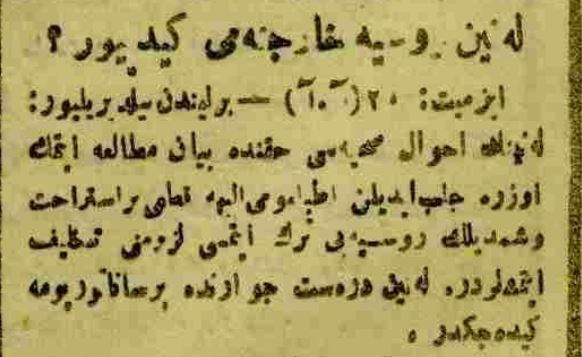 له نين روسيه خارجنه می کيديور ؟
ازميت: ٢٠ (آ.آ) — برليندن بيلديريليور:
له نينك احوال صحيه سی حقنده بيان مطالعه ايتمك
اوزره جلب ايديلن اطبا مومی اليهه تمامی بر استراحت
وشمديلك روسيه يی ترك ايتمسی لزومنی تكليف
ايتمشلردر. له نين درست جوارنده بر ساناتوريومه
كيده جكدر .